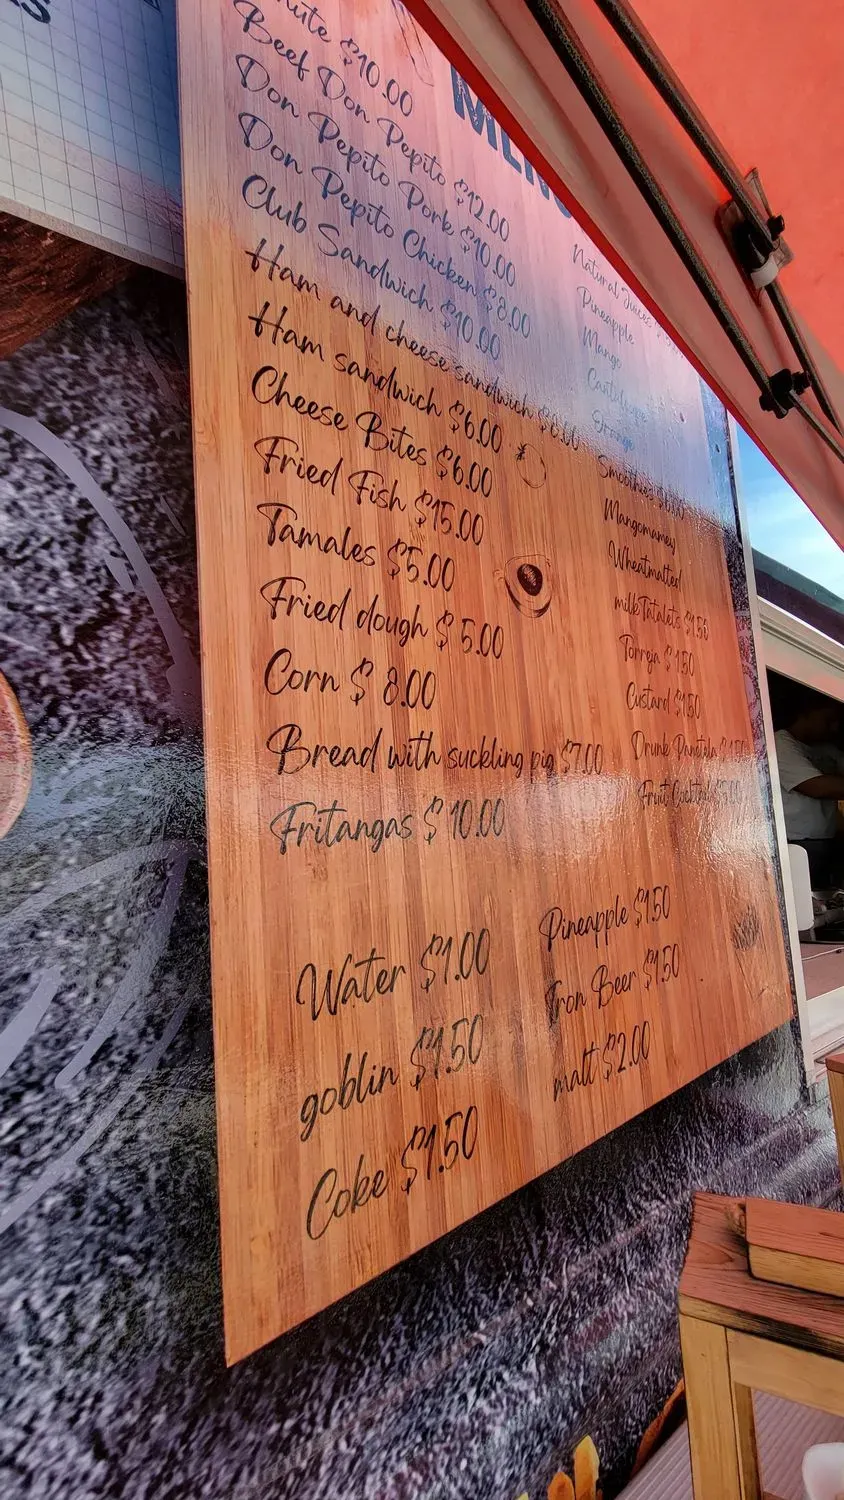 MENU
$10.00
Beef Don Pepito $12.00
Don Pepito Pork $10.00
Don Pepito Chicken $8.00
Club Sandwich $10.00
Ham and cheese sandwich $6.00
Ham sandwich $6.00
Cheese Bites $6.00
Fried Fish $15.00
Tamales $5.00
Fried dough $ 5.00
Corn $ 8.00
Bread with suckling pig $7.00
Fritangas $ 10.00
Natural Juices
Pineapple
Mango
Cantaloupe
Orange
Smoothies $6.00
Mangomamey
Wheatmalted
milkTatalets $1.50
Torreja $ 1.50
Custard $1.50
Drunk Panetela $1.50
Fruit Cocktail $5.00
Water $1.00
goblin $1.50
Coke $1.50
Pineapple $1.50
Iron Beer $1.50
malt $2.00